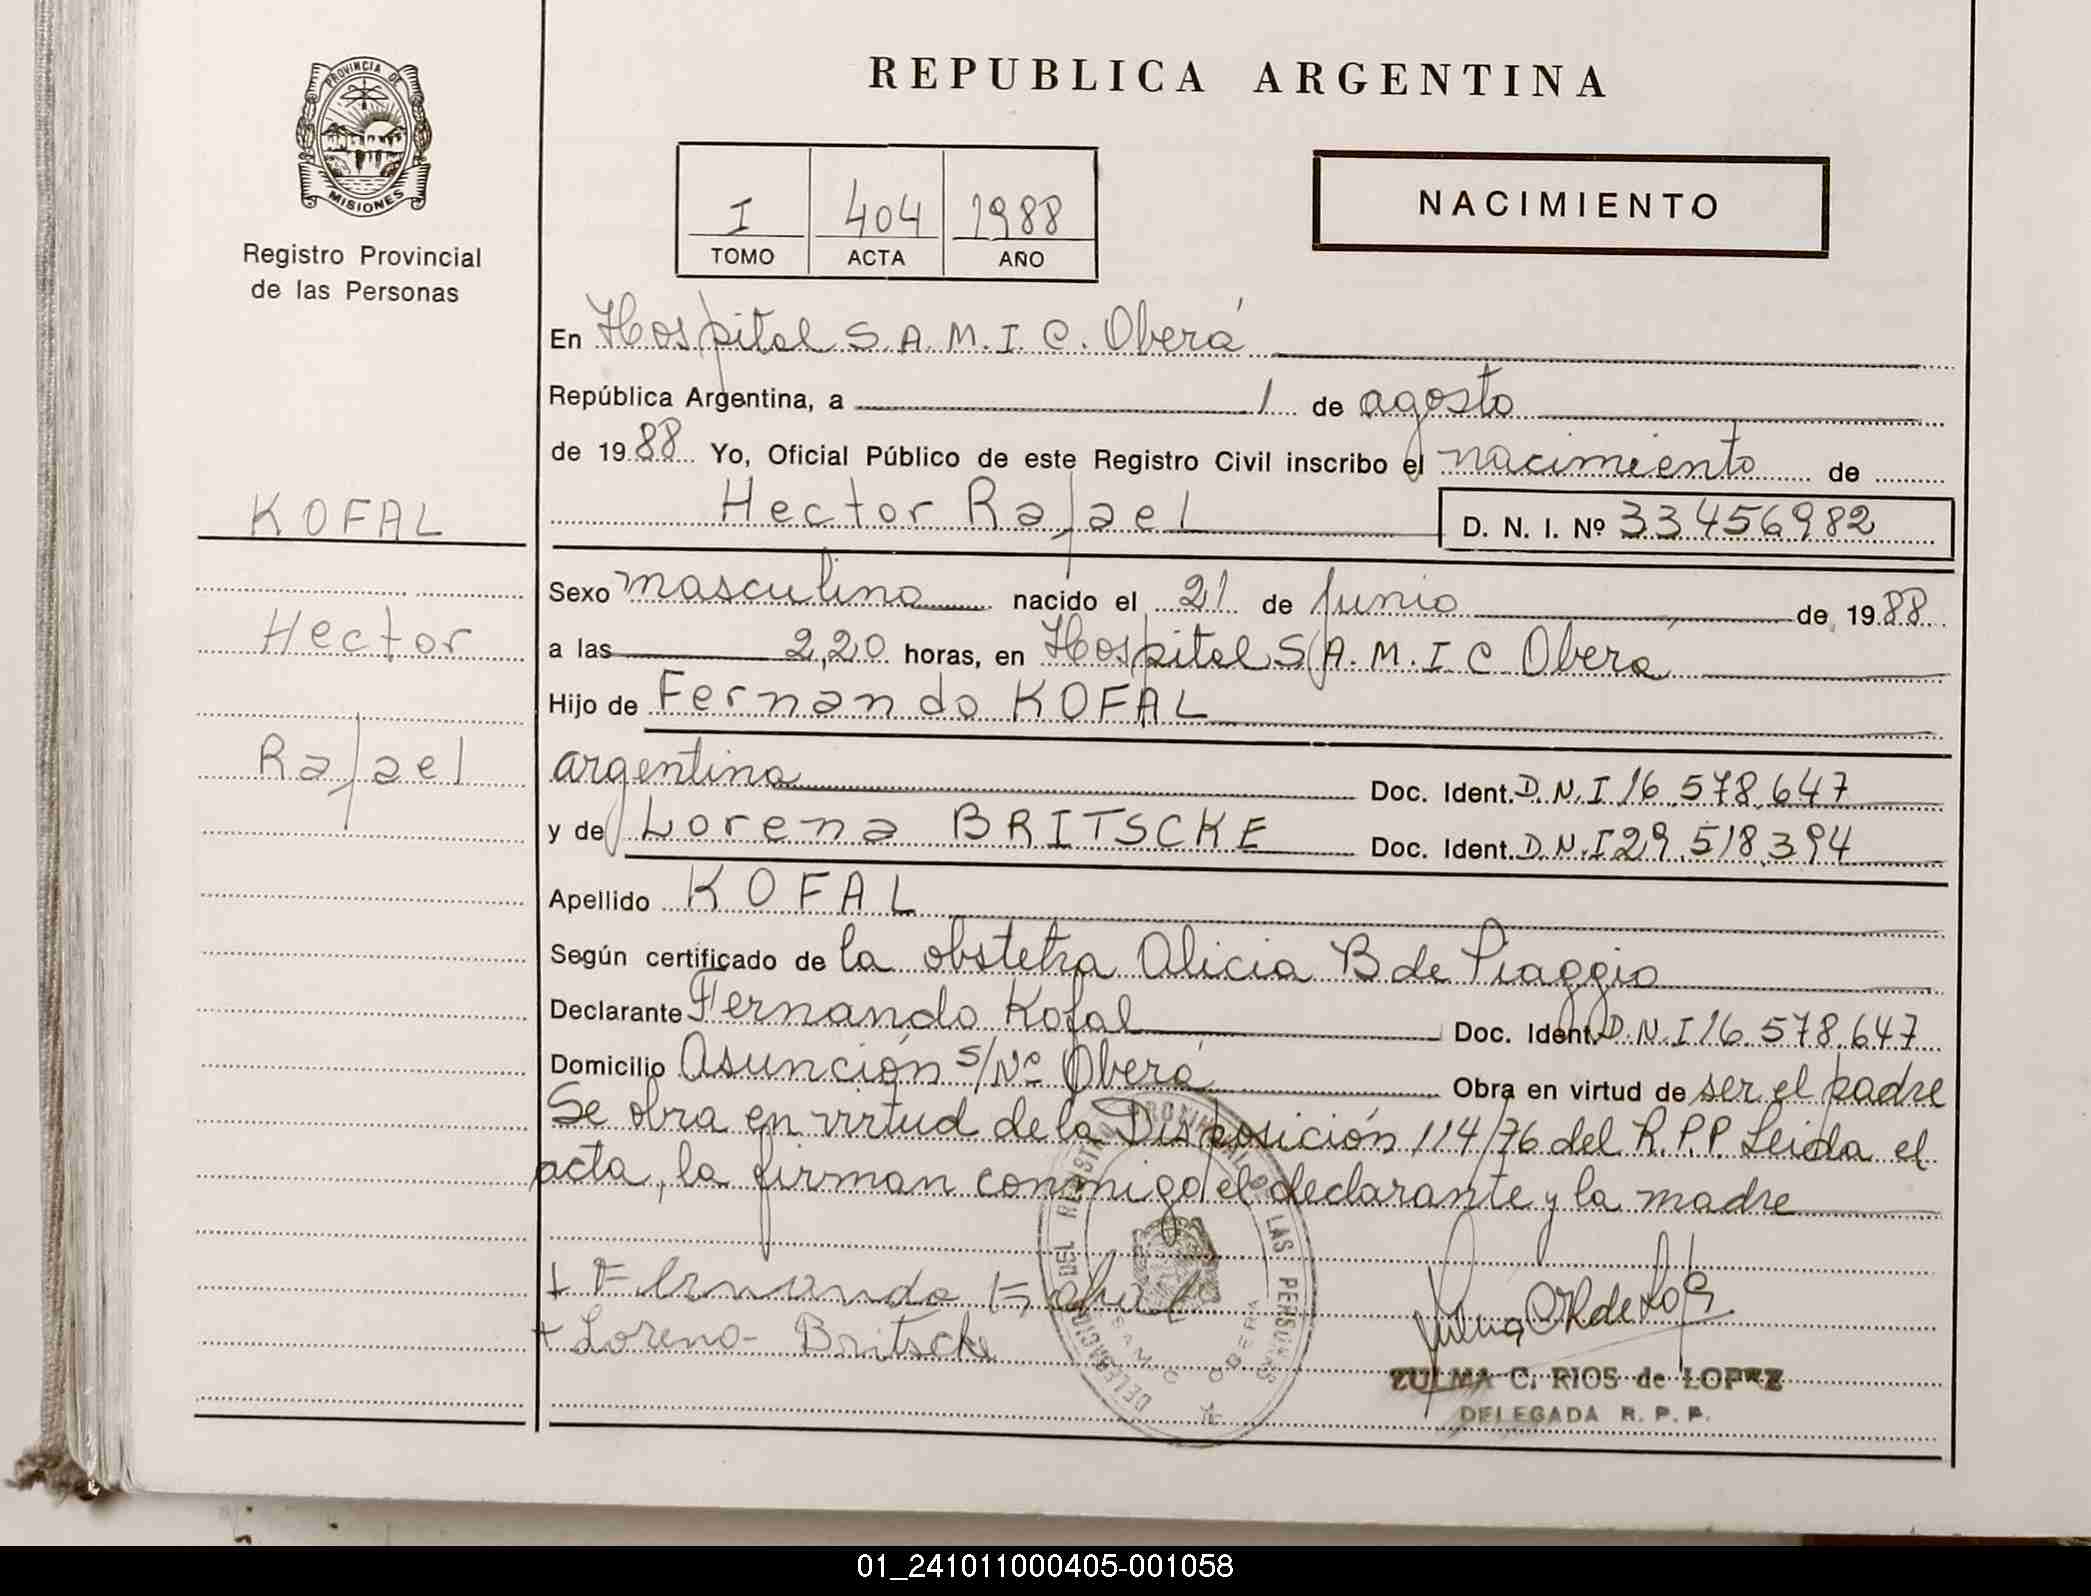 PROVINCIA DE
MISIONES
Registro Provincial
de las Personas
KOFAL
Hector
Rafael
REPUBLICA ARGENTINA
I 404 1988
TOMO ACTA AÑO
NACIMIENTO
En Hospital S.A.M.I.C. Oberá
República Argentina, a 1 de agosto
de 1988 Yo, Oficial Público de este Registro Civil inscribo el nacimiento de
Hector Rafael D. N. I. Nº 33456982
Sexo masculino nacido el 21 de Junio de 1988
a las 2,20 horas, en Hospital S.A.M.I.C Oberá
Hijo de Fernando KOFAL
argentina Doc. Ident. D.N.I 16.578.647
y de Lorena BRITSCKE Doc. Ident. D.N.I 29.518.394
Apellido KOFAL
Según certificado de la obstetra Alicia B de Piaggio
Declarante Fernando Kofal Doc. Ident. D.N.I 16.578.647
Domicilio Asunción s/Nº Oberá Obra en virtud de ser el padre
Se obra en virtud de la Disposición 114/76 del R.P.P Leida el
acta, la firman conmigo el declarante y la madre
+ Fernando
+ Lorena Britscke
DELEGACION DEL REGISTRO PROVINCIAL DE LAS PERSONAS
SAMIC OBERA
ZULMA C. RIOS de LOPEZ
DELEGADA R. P. P.
01_241011000405-001058